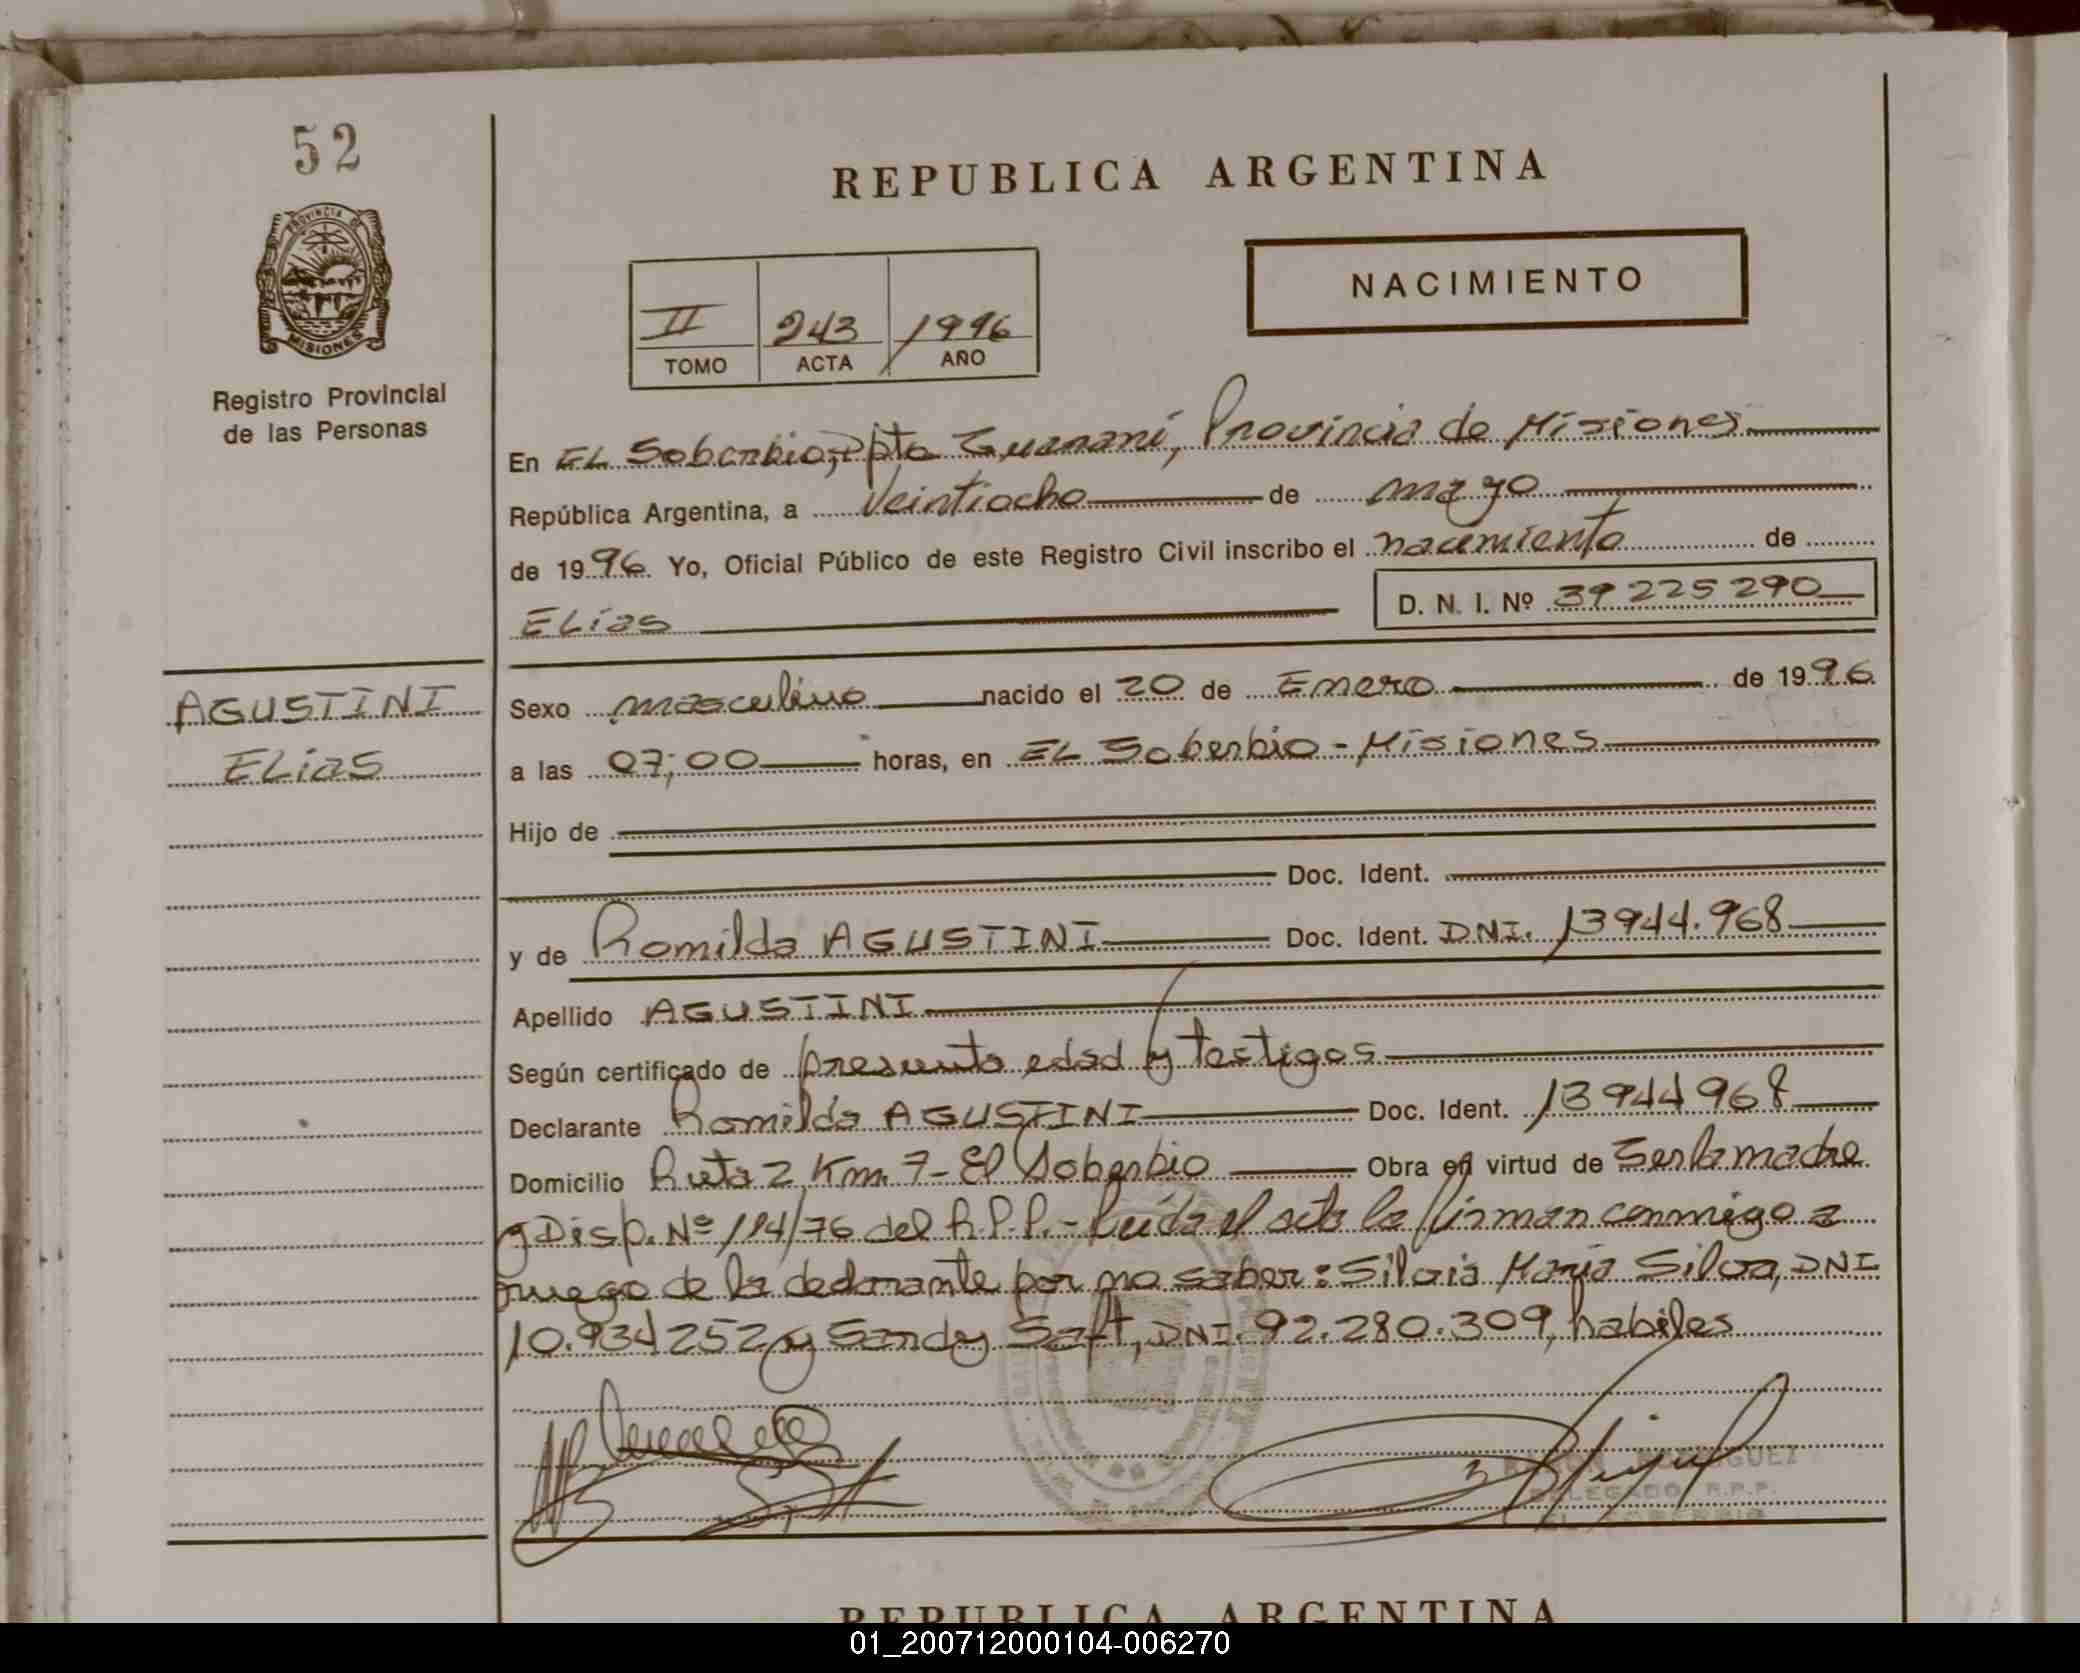 52
REPUBLICA ARGENTINA
PROVINCIA DE
MISIONES
Registro Provincial
de las Personas
II 243 1996
TOMO ACTA AÑO
NACIMIENTO
En EL Soberbio, Dpto Guaraní, Provincia de Misiones
República Argentina, a Veintiocho de mayo
de 1996 Yo, Oficial Público de este Registro Civil inscribo el nacimiento de
Elías D. N. I. Nº 39 225 290
AGUSTINI
ELias
Sexo masculino nacido el 20 de Enero de 1996
a las 07;00 horas, en EL Soberbio - Misiones
Hijo de
Doc. Ident.
y de Romilda AGUSTINI Doc. Ident. DNI. 13944.968
Apellido AGUSTINI
Según certificado de presunta edad y testigos
Declarante Romilda AGUSTINI Doc. Ident. 13944968
Domicilio Ruta 2 Km. 7 - El Soberbio Obra en virtud de Ser la madre
y Disp. Nº 114/76 del R.P.P. - Leída el acta la firman conmigo a
ruego de la declarante por no saber: Silvia María Silva, DNI
10.934252 y Sandy Saft, DNI. 92.280.309, habiles
RAMON RODRIGUEZ
DELEGADO R.P.P.
EL SOBERBIO
REPUBLICA ARGENTINA
01_200712000104-006270